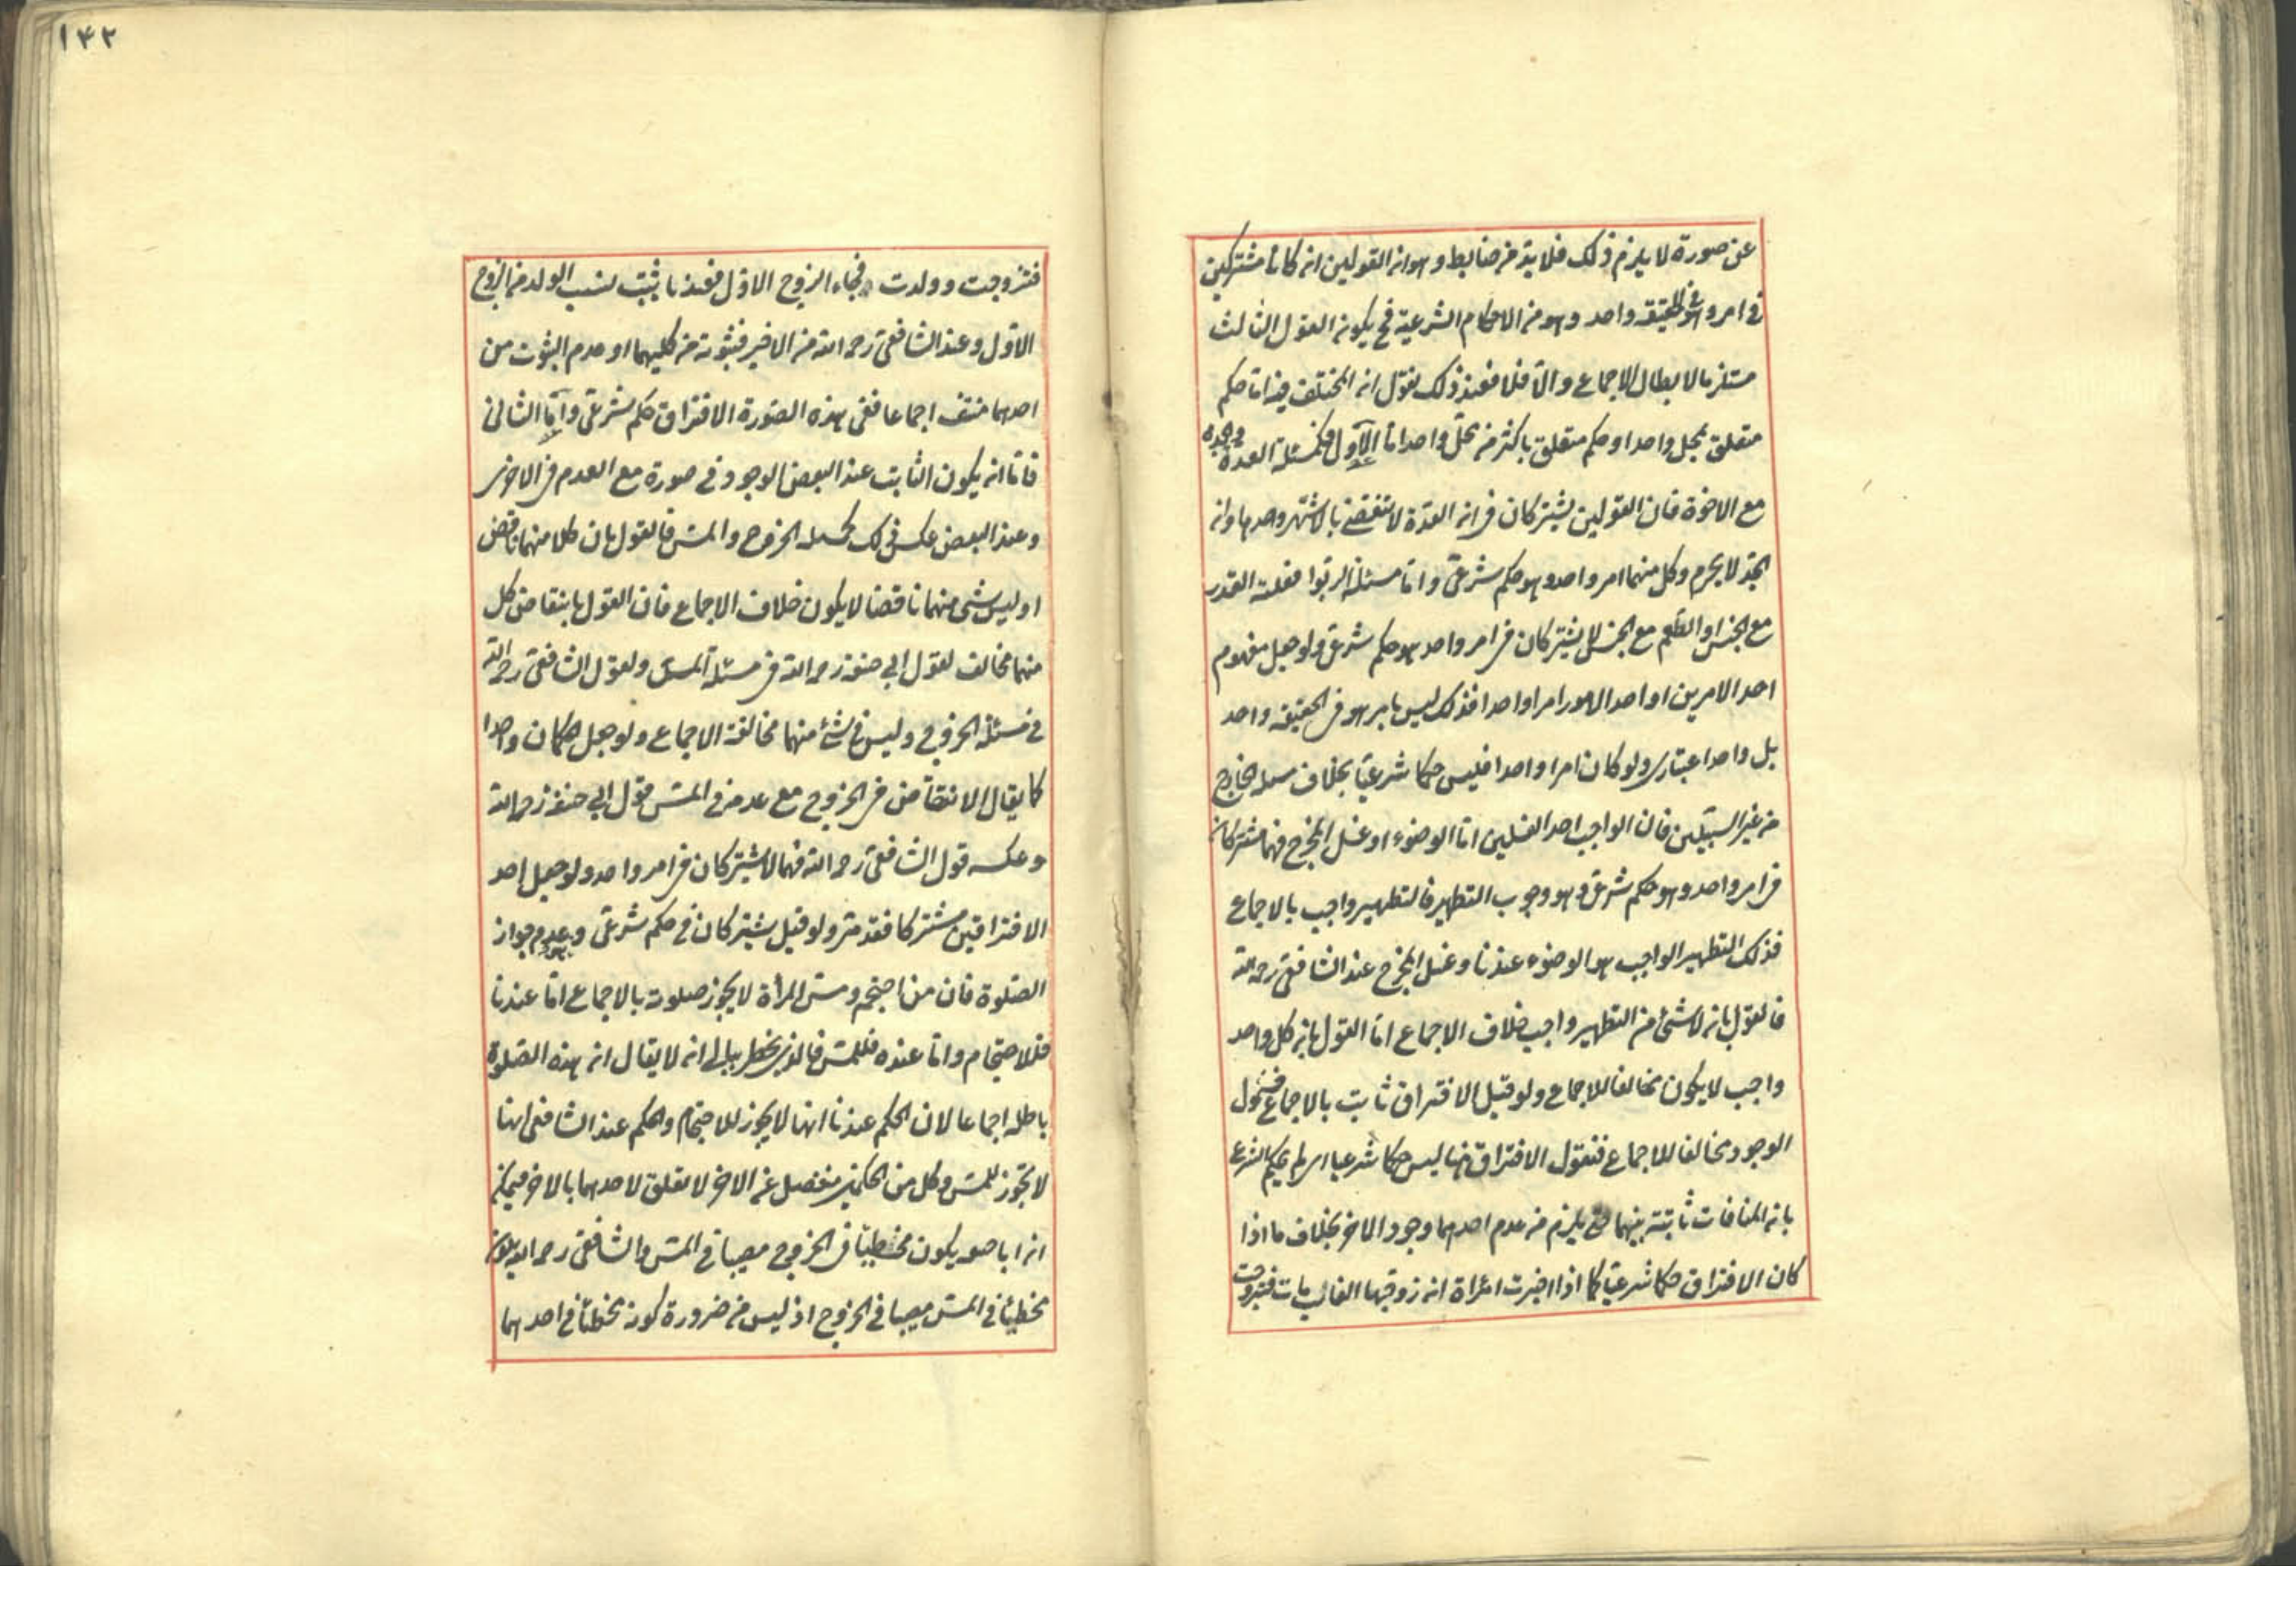 عن صورة لا يلزم ذلك فلا بد من ضابط وهو ان القولين ان كانا مشتركين
في امر وهو في الحقيقة واحد وهو من الاحكام الشرعية فح يكون القول الثالث
مستلزما لابطال الاجماع والا فلا فعند ذلك نقول ان المختلف فيه اما حكم
متعلق بمحل واحد او حكم متعلق باكثر من محل واحد اما الاول فكمسئلة العدة والجد
مع الاخوة فان القولين يشتركان في ان العدة لا تنقضي بالاشهر وحدها وان
الجد لا يحرم وكل منهما امر واحد وهو حكم شرعي واما مسئلة الربوا فعلية القدر
مع الجنس او الطعم مع الجنس لا يشتركان في امر واحد هو حكم شرعي ولو جعل مفهوم
احد الامرين او احد الامور امرا واحدا فذلك ليس بامر هو في الحقيقة واحد
بل واحد اعتباري ولو كان امرا واحدا فليس حكما شرعيا بخلاف مسئلة الخارج
من غير السبيلين فان الواجب احد الغسلين اما الوضوء او غسل المخرج فهما مشتركان
في امر واحد وهو حكم شرعي وهو وجوب التطهير فالتطهير واجب بالاجماع
فذلك التطهير الواجب هو الوضوء عندنا وغسل المخرج عند الشافعي رحمه الله
فالقول بان لا شئ من التطهير واجب خلاف الاجماع اما القول بان كل واحد
واجب لا يكون مخالفا للاجماع ولو قيل الافتراق ثابت بالاجماع فشمول
الوجود مخالفا للاجماع فنقول الافتراق هنا ليس حكما شرعيا اي لم يحكم الشرع
بان المنافات ثابتة بينهما حتى يلزم من عدم احدهما وجود الاخر بخلاف ما اذا
كان الافتراق حكما شرعيا كما اذا اخبرت امراة ان زوجها الغائب مات فتزوجت
١٤٢
فتزوجت وولدت فجاء الزوج الاول فعندنا يثبت نسب الولد من الزوج
الاول وعند الشافعي رحمه الله من الاخير فثبوته من كليهما او عدم الثبوت من
احدهما منتف اجماعا ففي هذه الصورة الافتراق حكم شرعي واما الثاني
فاما ان يكون الثابت عند البعض الوجود في صورة مع العدم في الاخرى
وعند البعض عكس ذلك كمسئلة الخروج والمس فالقول بان كلا منهما ناقض
او ليس شئ منهما ناقضا لا يكون خلاف الاجماع فان القول بانتقاض كل
منهما مخالف لقول ابي حنيفة رحمه الله في مسئلة المس ولقول الشافعي رحمه الله
في مسئلة الخروج وليس في شئ منهما مخالفة الاجماع ولو جعل الحكمان واحدا
كما يقال الانتقاض في الخروج مع عدمه في المس قول ابي حنيفة رحمه الله
وعكسه قول الشافعي رحمه الله فهما لا يشتركان في امر واحد ولو جعل احد
الافتراقين مشتركا فقد مر ولو قيل يشتركان في حكم شرعي وهو عدم جواز
الصلوة فان من احتجم ومس المرأة لا يجوز صلوته بالاجماع اما عندنا
فللاحتجام واما عنده فللمس فالذي يخطر ببالي انه لا يقال ان هذه الصلوة
باطلة اجماعا لان الحكم عندنا انها لا يجوز للاحتجام والحكم عند الشافعي انها
لا تجوز للمس وكل من الحكمين منفصل عن الاخر لا تعلق لاحدهما بالاخر فيمكن
ان ابا حنيفة يكون مخطيا في الخروج مصيبا في المس والشافعي رحمه الله يكون
مخطيا في المس مصيبا في الخروج اذ ليس من ضرورة كونه مخطئا في احدهما